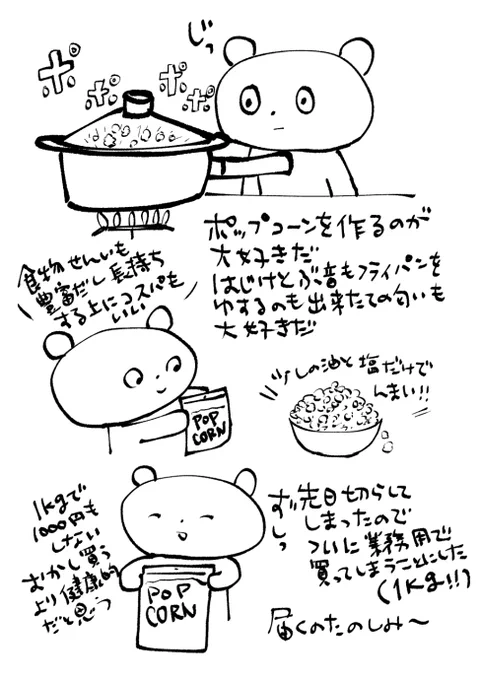 じっ
ポ ポ ポ ポ
ポップコーンを作るのが
大好きだ
はじけとぶ音もフライパンを
ゆするのも出来たての匂いも
大好きだ
食物せんいも
豊富だし長持ち
する上にコスパも
いい
POP
CORN
少しの油と塩だけで
んまい!!
1kgで
1000円も
しない
おかし買う
より健康的
だと思う
POP
CORN
ずしっ
先日切らして
しまったので
ついに業務用で
買ってしまうことにした
(1kg!!)
届くのたのしみ〜